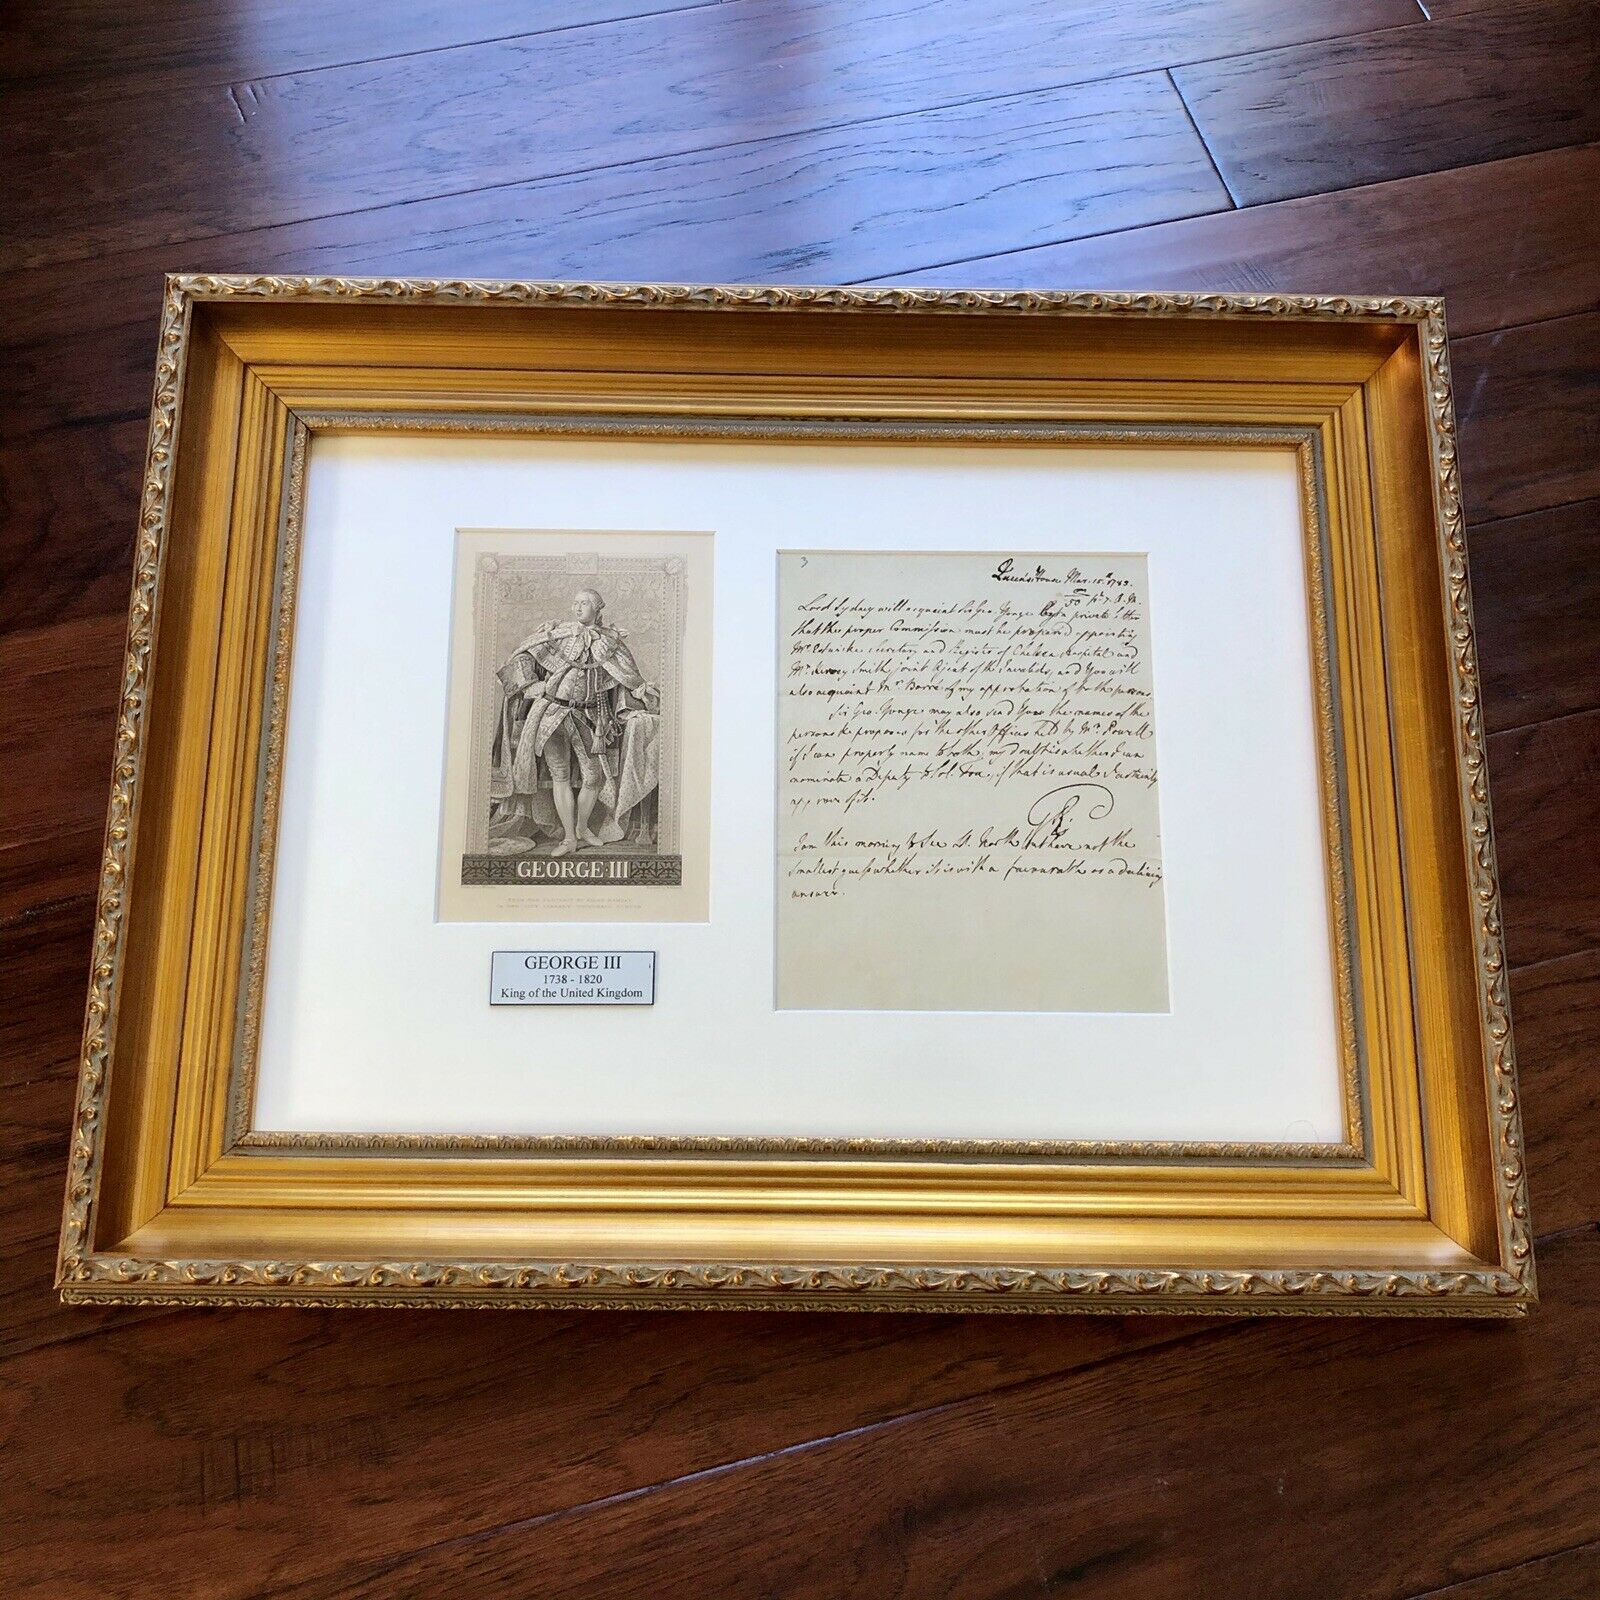 GEORGE III
FROM THE PORTRAIT BY ALLAN RAMSAY
GEORGE III
1738 - 1820
King of the United Kingdom
3
Queen's House Mar. 15th 1783.
50 pt 7. A.M.
Lord Sydney will acquaint Sir Geo. Yonge by a private letter
that the proper Commission must be prepared appointing
Mr. Secretary and Register of Chelsea Hospital and
Mr. Smith joint Agent of the Invalids, and You will
also acquaint Mr. Barré of my approbation of both persons
Sir Geo. Yonge may also send You the names of the
persons he proposes for the other Offices held by Mr. Powell
if I can properly name to both, my doubt is whether I can
nominate a Deputy to Col. if that is usual I certainly
approve of it.
GR.
I am this morning to see Ld. North but have not the
smallest guess whether it is with a favourable or a declining
answer.